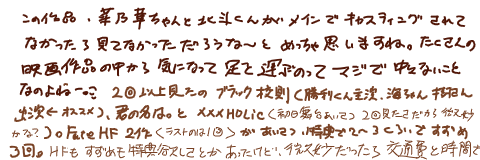 この作品、菜乃華ちゃんと北斗くんがメインでキャスティングされて
なかったら見てなかっただろうな〜とめっちゃ思いますね。たくさんの
映画作品の中から気になって足を運ぶのってマジで中々ないこと
なのよね…。2回以上見たのブラック校則(勝利くん主演、海ちゃん
出演←オススメ)、君の名は。とxxxHOLiC(初回舞台あいさつ)2回見たことだから
かな？)。Fate HF 2作(ラストのは1回)があいさつ、特典で2〜3くらいですずめ
3回。HFもすずめも特典含んでとかあったけど、だったら交通費と時間で